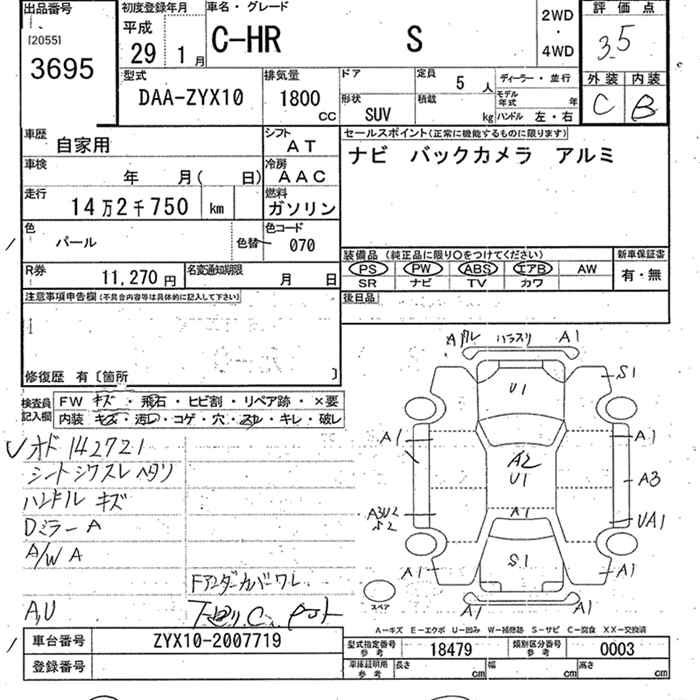 出品番号 初度登録年月 車名・グレード 評価点
[2055] 平成 2WD
3695 29 1月 C-HR S ・ 3.5
4WD
型式 排気量 ドア 定員 5人 ディーラー・並行 外装 内装
DAA-ZYX10 1800cc 形状 SUV 積載 kg モデル年式 年 C B
ハンドル 左・右
車歴 自家用 シフト AT セールスポイント(正常に機能するものに限ります)
車検 年 月( 日) 冷房 AAC ナビ バックカメラ アルミ
走行 14万2千750 km 燃料 ガソリン
色 パール 色替 色コード 070
装備品(純正品に限り○をつけてください) 新車保証書
PS PW ABS エアB AW 有・無
SR ナビ TV カワ
R券 11,270円 名変通知期限 月 日
後日品
注意事項申告欄(不具合内容等は具体的に記入して下さい)
修復歴 有〔箇所 〕
検査員記入欄 FW キズ・飛石・ヒビ割・リペア跡・×要
内装 キズ・汚レ・コゲ・穴・スレ・キレ・破レ
オド 142721
シートシワスレヘタリ
ハンドル キズ
Dミラー A
A/W A
Fアンダーカバーワレ
A,U 下廻りC
A グリル ハラスリ A1
U1 S1
A1 A2 A1
U1 A3
A1 UA1
S1
A1 A1
スペア A1 A1
A-キズ E-エクボ U-凹み W-補修跡 S-サビ C-腐食 XX-交換済
車台番号 ZYX10-2007719 型式指定番号 参考 18479 類別区分番号 参考 0003
登録番号 車庫証明用 参考 長さ cm 幅 cm 高さ cm